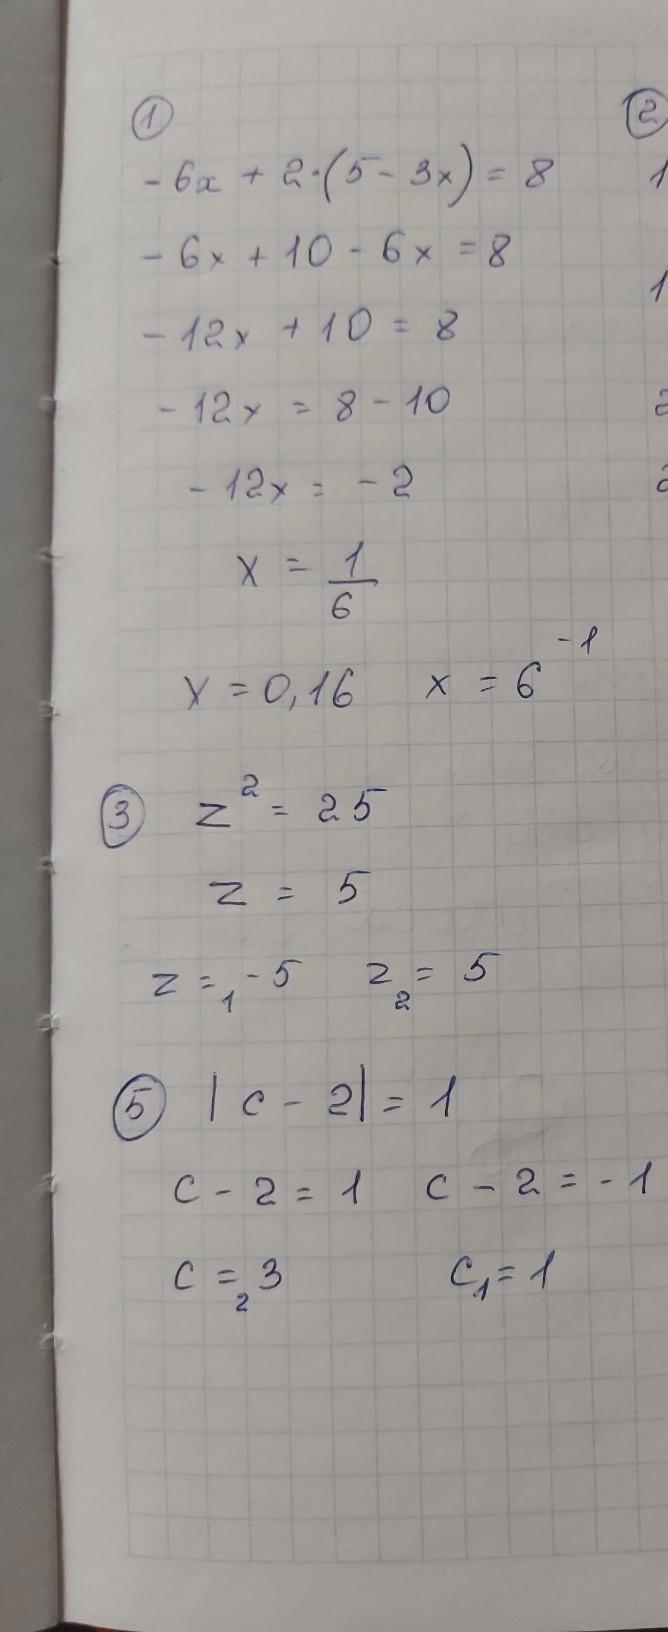 ①
-6x + 2·(5 - 3x) = 8
-6x + 10 - 6x = 8
-12x + 10 = 8
-12x = 8 - 10
-12x = -2
x = 1/6
x = 0,16 x = 6^-1
③ z² = 25
z = 5
z =₁ -5 z₂ = 5
⑤ |c - 2| = 1
c - 2 = 1 c - 2 = -1
c =₂ 3 c₁ = 1
②
1
1